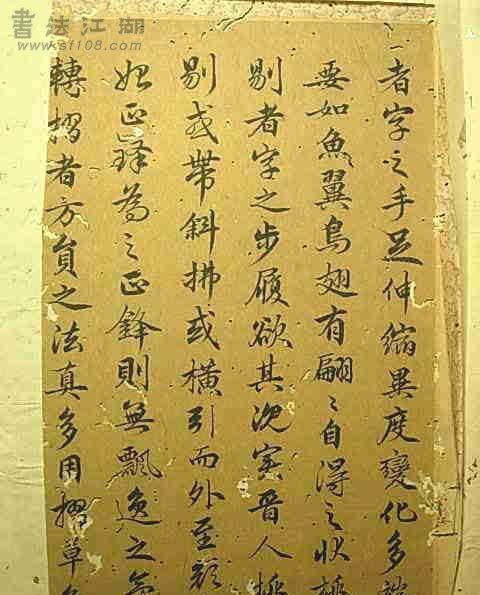 書法江湖
www.sf108.com
者字之手足伸縮異度變化多
要如魚翼鳥翅有翩〻自得之狀
剔者字之步履欲其沉實晉人挑
剔或帶斜拂或橫引而外至顏
始正鋒為之正鋒則無飄逸之氣
轉摺者方員之法真多用摺草